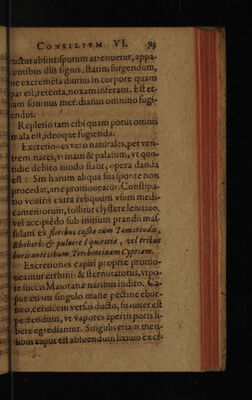 CONSILIVM VI. 93
ructus absint: spurum attenuetur, appa-
rentibus illis signis, statim surgendum,
ne excremēta diutius in corpore quam
par est, retenta, noxam inferant. Est et-
iam somnus meridianus omnino fugi-
endus.
Repletio tam cibi quam potus omnis
mala est, ideoque fugienda.
Excretiones vero naturales, per ven-
trem, nares, vrinam & palatum, vt quo-
tidie debito modo fiant, opera danda
est: Sin harum aliqua sua sponte non
procedat, arte promoueatur. Constipa-
tio ventris extra reliquum vsum medi-
camentorum, tollitur clystere lenitiuo,
vel accipiēdo sub initium prandii mas-
sulam ex floribus cassiæ cum Tamarindis,
Rhabarb. & puluere Liquiritiæ, vel tribus
horis ante cibum, Terebinthinam Cypriam.
Excretiones capiti propriæ promo-
ueantur errhinis & sternutatoriis, vt po-
te succo Maioranæ naribus indito. Ca-
put etiam singulo mane pectine ebur-
neo, ceruicem versus ducto, suauiter est
pectendum, vt vapores apertis poris li-
bere egrediantur. Singulis etiam men-
sibus caput est abluendum lixiuio ex ci-